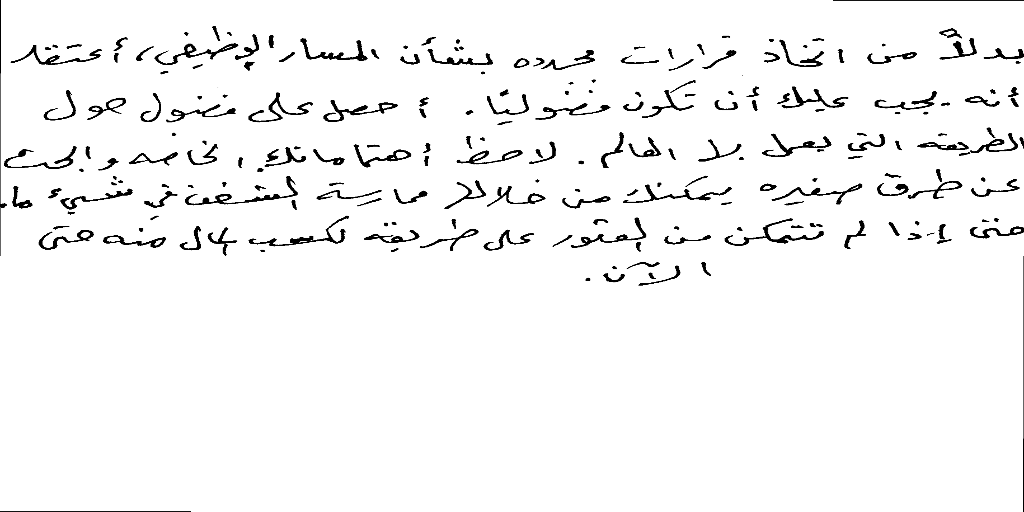 بدلاً من اتخاذ قرارات محدده بشأن المسار الوظيفي، أعتقد
أنه يجب عليك أن تكون فضوليًا. أحصل على فضول حول
الطريقه التي يعمل بها العالم. لاحظ أهتماماتك الخاصه وابحث
عن طرق صغيره يمكنك من خلالها ممارسة الشغف في شيء ما.
حتى إذا لم تتمكن من العثور على طريقه لكسب المال منه حتى
الآن.